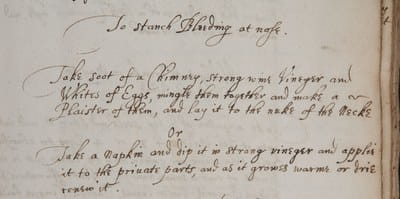 To stanch Bleeding at nose.
Take soot of a Chimney, strong wine Vineger and
Whites of Eggs, mingle them together and make a
Plaister of them, and lay it to the nuke of the Necke
Or
Take a Napkin and dip it in strong vineger and applie
it to the private parts, and as it growes warme or drie
renew it.